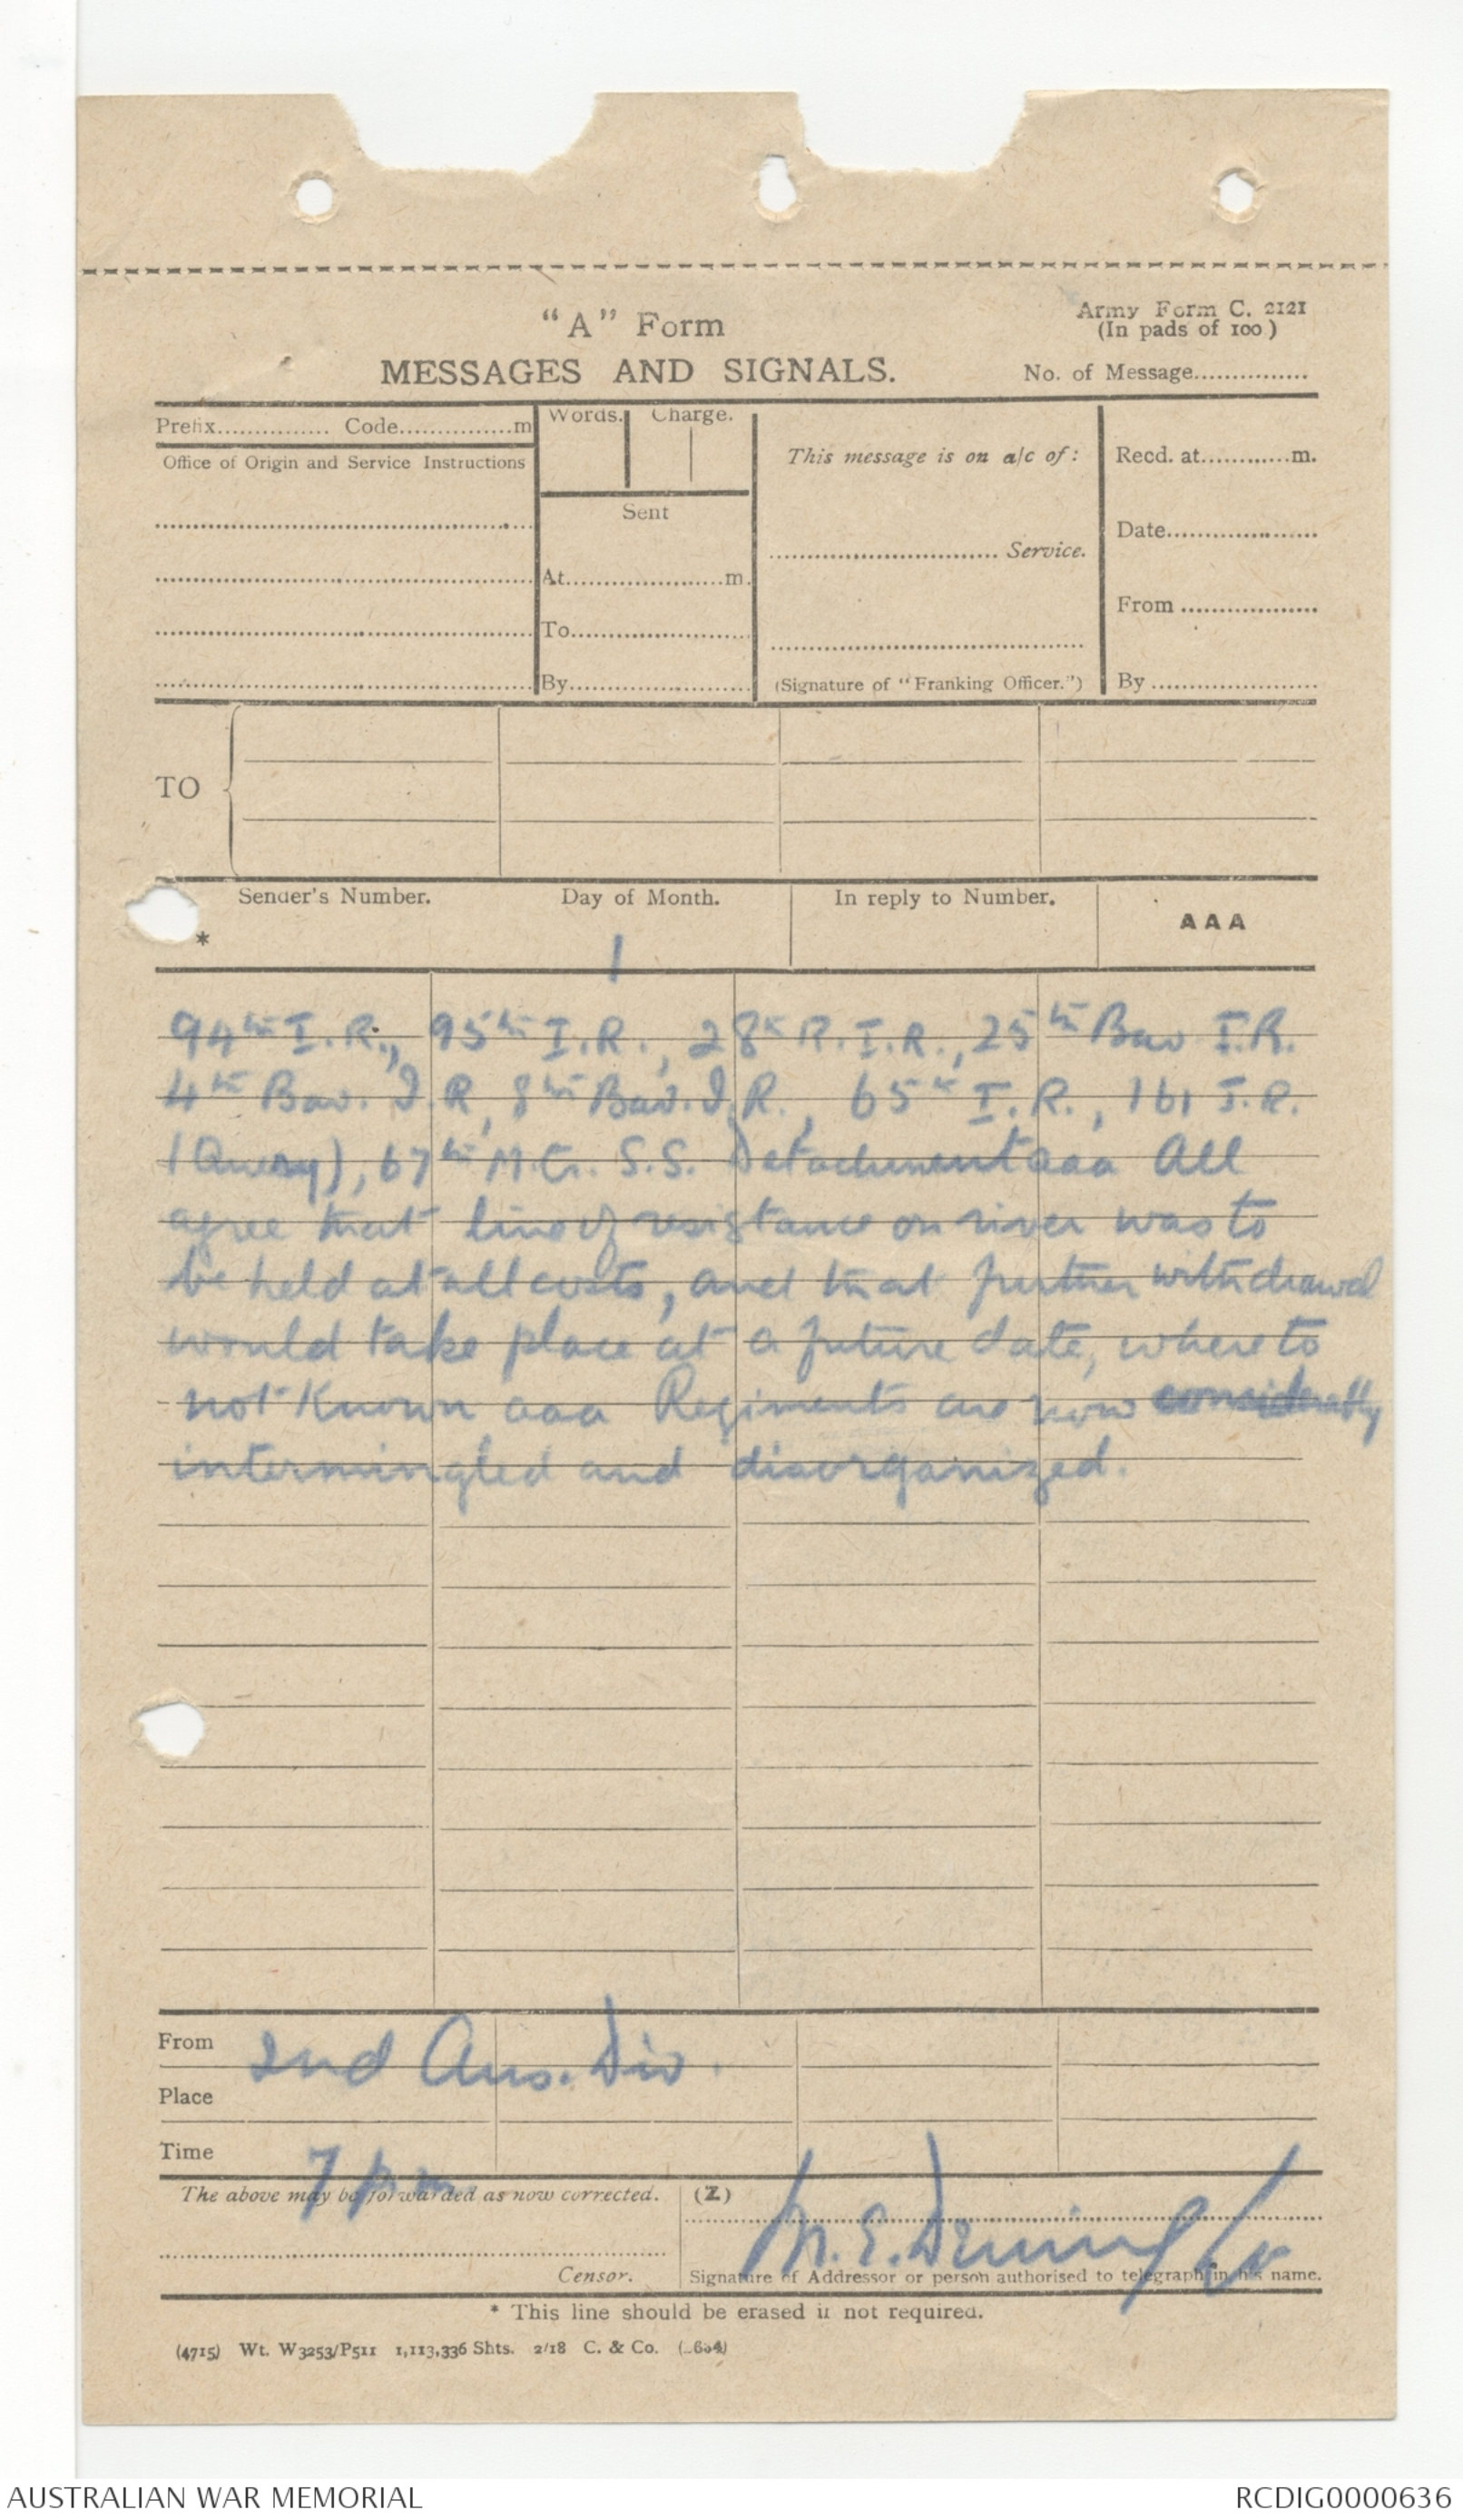 "A" Form
Army Form C. 2121
(In pads of 100)
MESSAGES AND SIGNALS.
No. of Message...............
Prefix............... Code...............m
Words. Charge.
This message is on a/c of:
Recd. at............m.
Office of Origin and Service Instructions
Sent
Date....................
.............................. Service.
At.....................m.
From ..................
To........................
By........................
(Signature of "Franking Officer.")
By ......................
TO
Sender's Number.
Day of Month.
In reply to Number.
AAA
*
1
94th I.R., 95th I.R., 28th R.I.R., 25th Bav I.R.
4th Bav. I.R, 8th Bav. I.R., 65th I.R., 161 I.R.
(Query), 67th M.G. S.S. Detachment aaa All
agree that line of resistance on river was to
be held at all costs, and that further withdrawal
would take place at a future date, where to
not known aaa Regiments are now considerably
intermingled and disorganized.
From
2nd Aus. Div.
Place
Time
7 pm
The above may be forwarded as now corrected.
(Z)
Censor.
Signature of Addressor or person authorised to telegraph in his name.
* This line should be erased if not required.
(4715) Wt. W3253/P511 1,113,336 Shts. 2/18 C. & Co.
AUSTRALIAN WAR MEMORIAL
RCDIG0000636